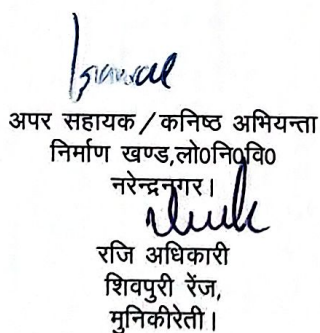 अपर सहायक/कनिष्ठ अभियन्ता
निर्माण खण्ड,लो0नि0वि0
नरेन्द्रनगर।
रजि अधिकारी
शिवपुरी रेंज,
मुनिकीरेती।